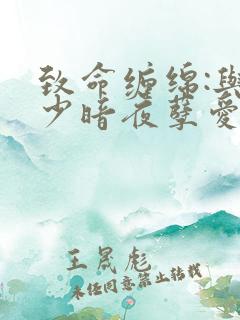 致命缠绵:與
少暗夜孽爱
王晟彪
未经同意禁止转载